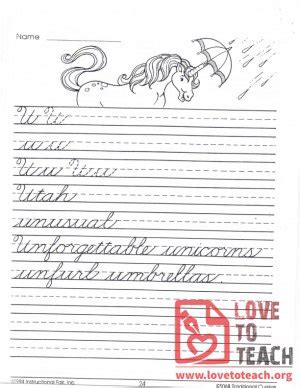 Name
U U
u u
U u U u
Utah
unusual
Unforgettable unicorns
unfurl umbrellas.
LOVE
TO
TEACH
www.lovetoteach.org
©1984 Instructional Fair, Inc.
24